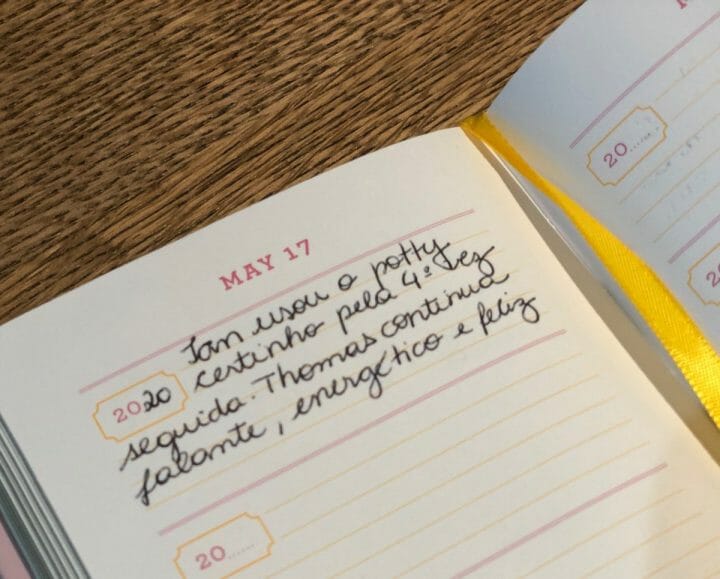 MAY 17
Ian usou o potty
2020 certinho pela 4ª vez
seguida. Thomas continua
falante, energético e feliz
20......
20......
20